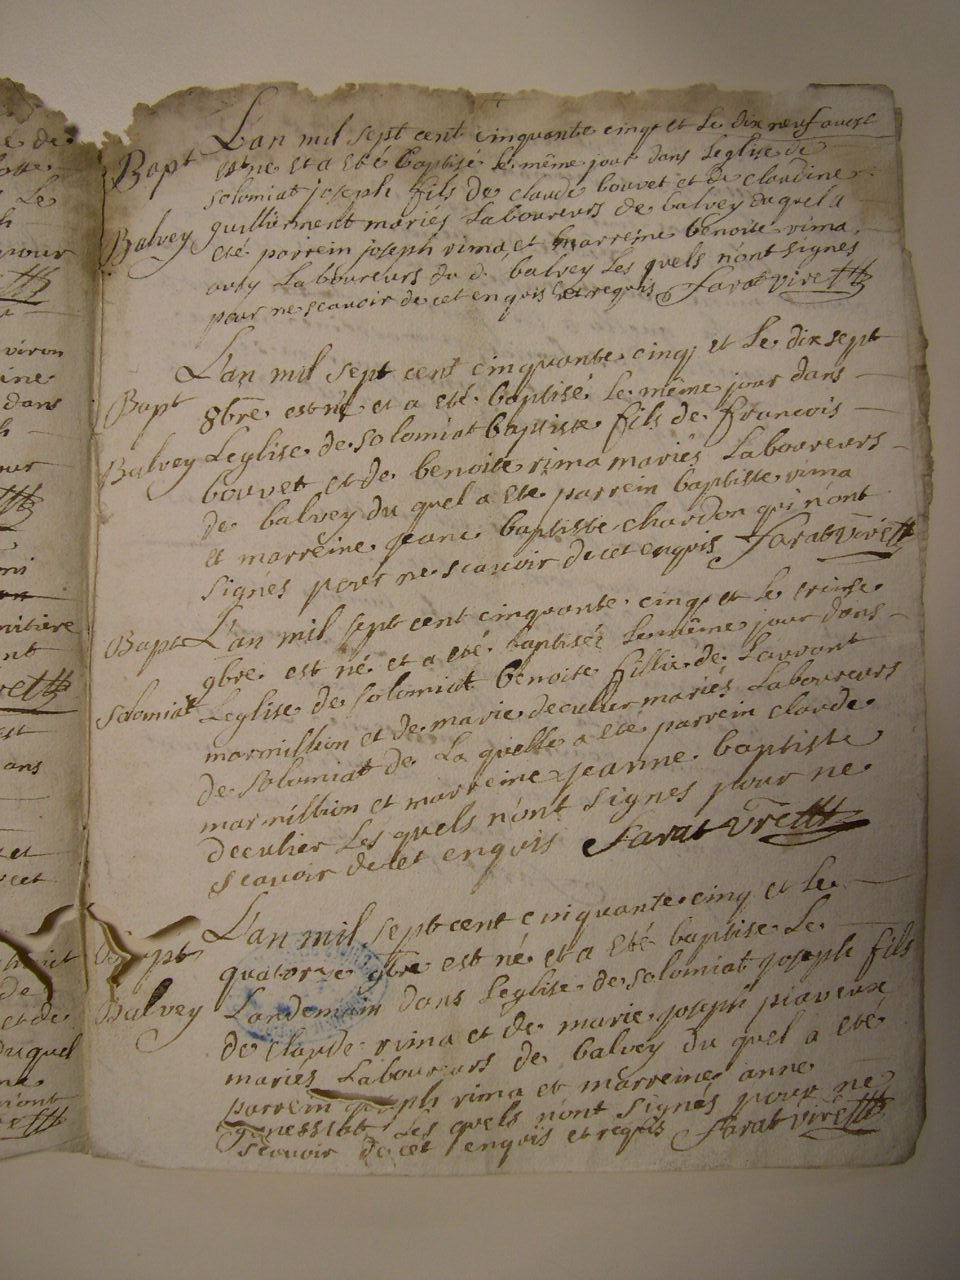 L'an mil sept cent cinquante cinq et le dix neuf aoust
Bapt est né et a eté baptisé le même jour dans Leglise de
solomiat joseph fils de claude bouvet et de claudine
Balvey guillierment mariés Laboureurs de balvey du quel a
eté parrein joseph rima et marreine benoite rima
aussy Laboureurs du d. balvey Les quels n'ont signés
pour ne scavoir de cet enquis et requis farat vire
L'an mil sept cent cinquante cinq et Le dix sept
Bapt 8bre est né et a eté baptisé Le même jour dans
Balvey Leglise de solomiat baptiste fils de francois
bouvet et de benoite rima mariés Laboureurs
de balvey du quel a eté parrein baptiste rima
et marreine jeane baptiste chardon qui n'ont
signés pour ne scavoir de cet enquis farat vire
Bapt L'an mil sept cent cinquante cinq et Le treise
9bre est né et a eté baptisée Le même jour dans
Solomiat Leglise de solomiat benoite fillie de Laurant
marmillion et de marie deculier mariés Laboureurs
de solomiat de La quelle a eté parrein claude
marmillion et marreine jeanne baptiste
deculier Les quels n'ont signés pour ne
scavoir de cet enquis farat vre
L'an mil sept cent cinquante cinq et Le
Bapt quatorze 9bre est né et a eté baptise Le
Balvey Landemain dans Leglise de solomiat joseph fils
de claude rima et de marie joseph piaveux
mariés Laboureurs de balvey du quel a eté
parrein joseph rima et marreine anne
Les quels n'ont signés pour ne
scavoir de cet enquis et requis farat vire